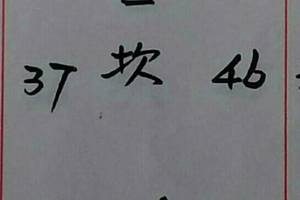 37 坎 46